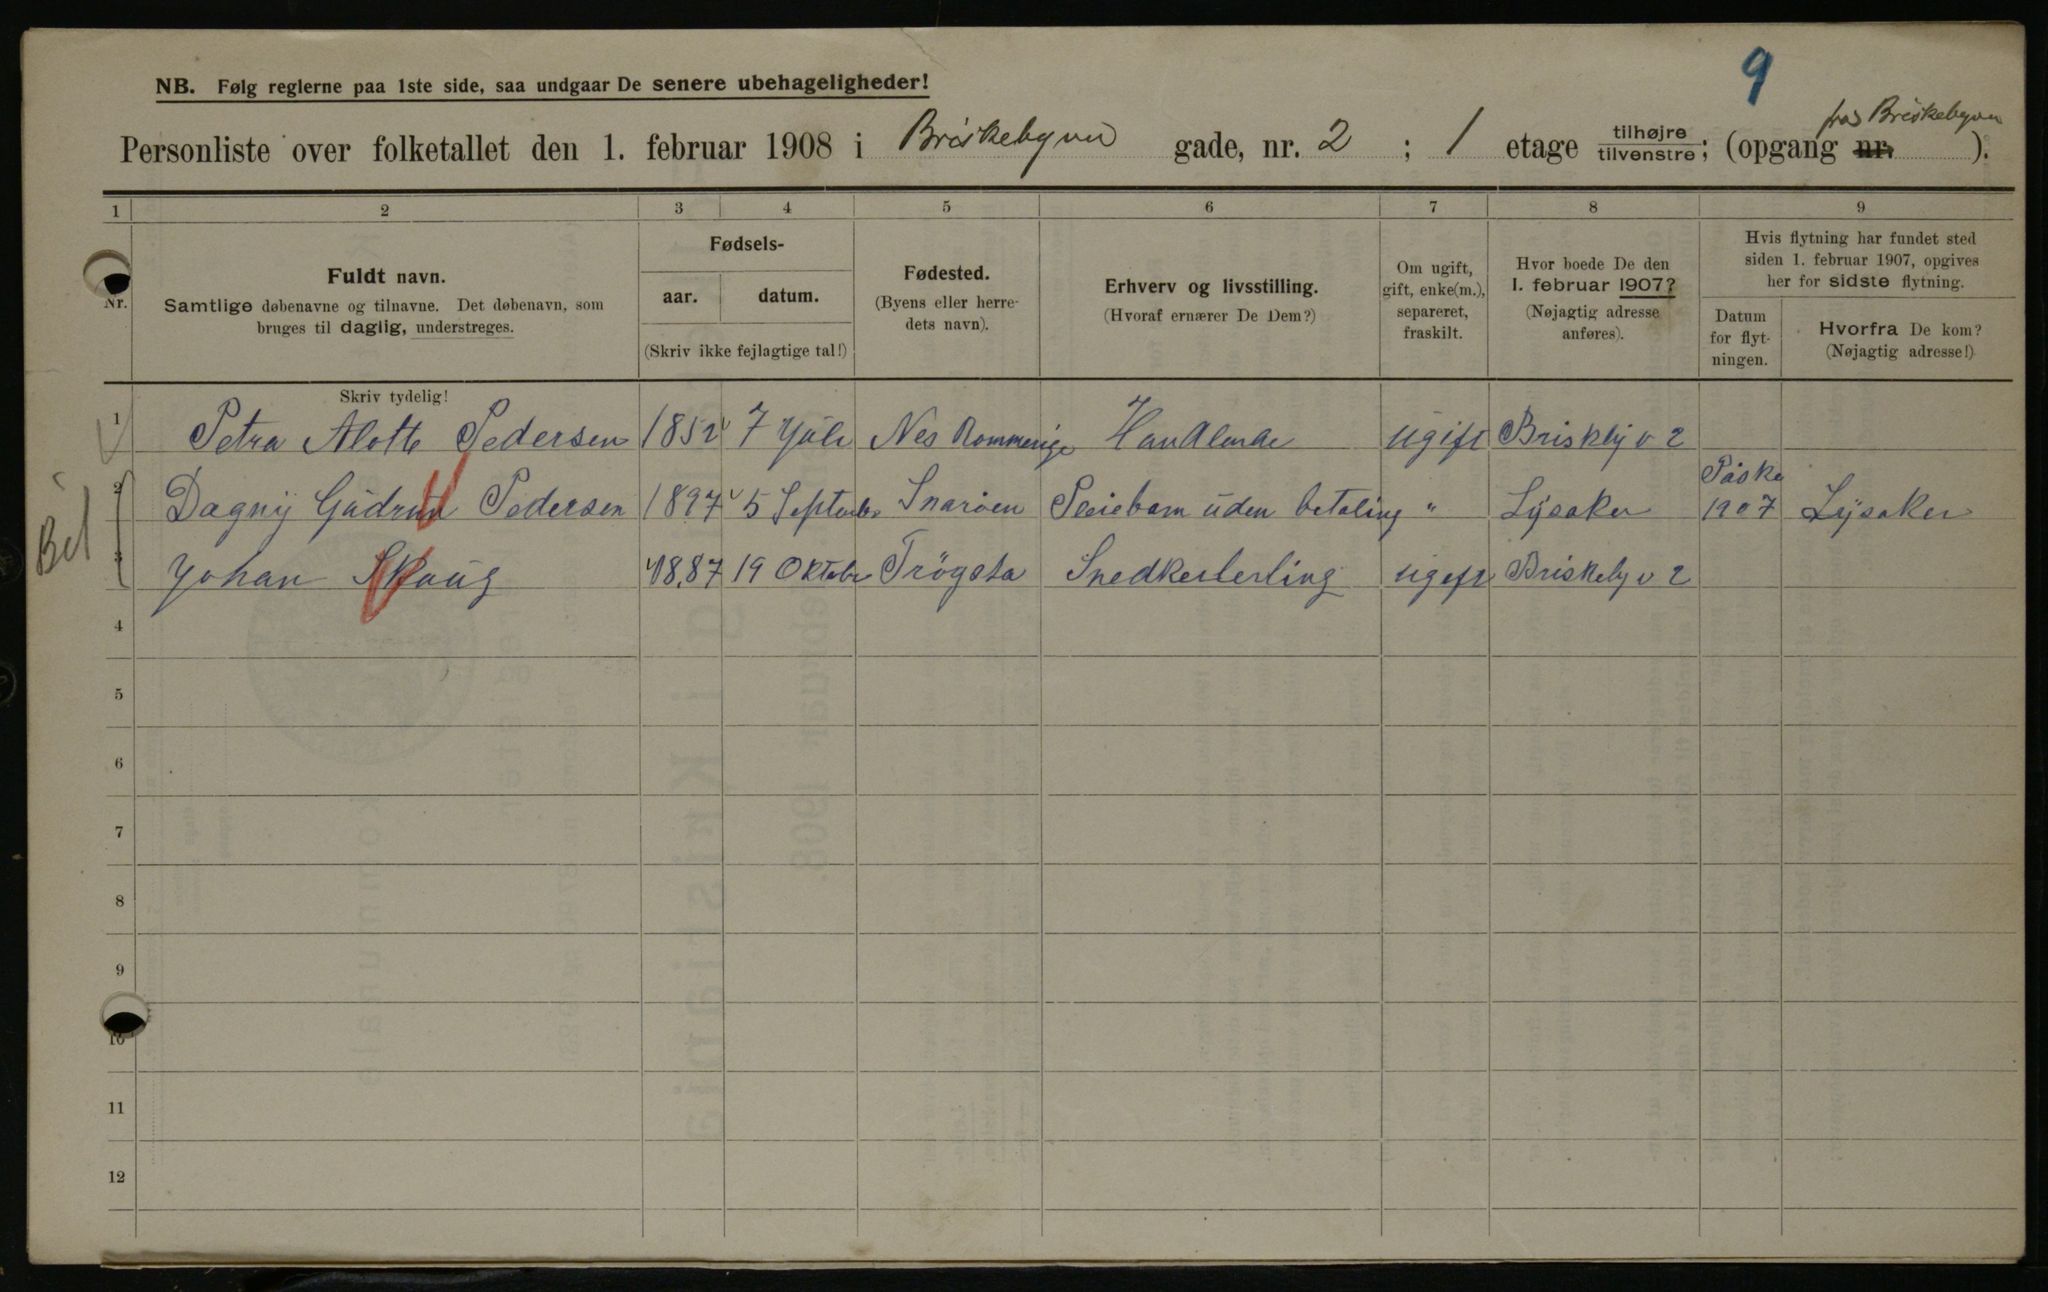 9
NB. Følg reglerne paa 1ste side, saa undgaar De senere ubehageligheder!
fra Briskebyvn
Personliste over folketallet den 1. februar 1908 i Briskebyvn gade, nr. 2 ; 1 etage tilhøjre tilvenstre; (opgang nr. ).
1 2 3 4 5 6 7 8 9
Nr.
Fuldt navn.
Samtlige døbenavne og tilnavne. Det døbenavn, som
bruges til daglig, understreges.
Fødsels-
aar. datum.
(Skriv ikke fejlagtige tal!)
Fødested.
(Byens eller herre-
dets navn).
Erhverv og livsstilling.
(Hvoraf ernærer De Dem?)
Om ugift,
gift, enke(m.),
separeret,
fraskilt.
Hvor boede De den
1. februar 1907?
(Nøjagtig adresse
anføres).
Hvis flytning har fundet sted
siden 1. februar 1907, opgives
her for sidste flytning.
Datum
for flyt-
ningen.
Hvorfra De kom?
(Nøjagtig adresse!)
Skriv tydelig!
1 Petra Alotte Pedersen 1852 7 Juli Nes Rommerige Handlende ugift Briskby v 2
2 Dagny Gudrun Pedersen 1897 5 Septembr Snarøen Pleiebarn uden betaling " Lysaker Påske 1907 Lysaker
3 Johan Skaug 1887 19 Oktobr Trøgsta Snedkerlerling ugift Briskeby v 2
4
5
6
7
8
9
10
11
12